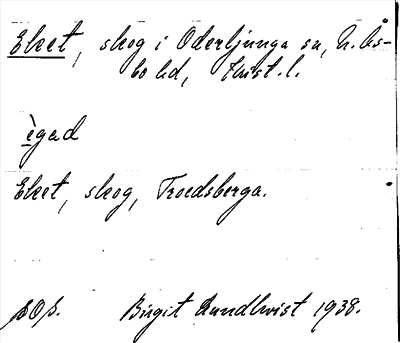 Eket, skog i Oderljunga sn, N. Ås-
bo hd, Krist. l.
ègad
Eket, skog, Troedsberga.
Birgit Lundkvist 1938.